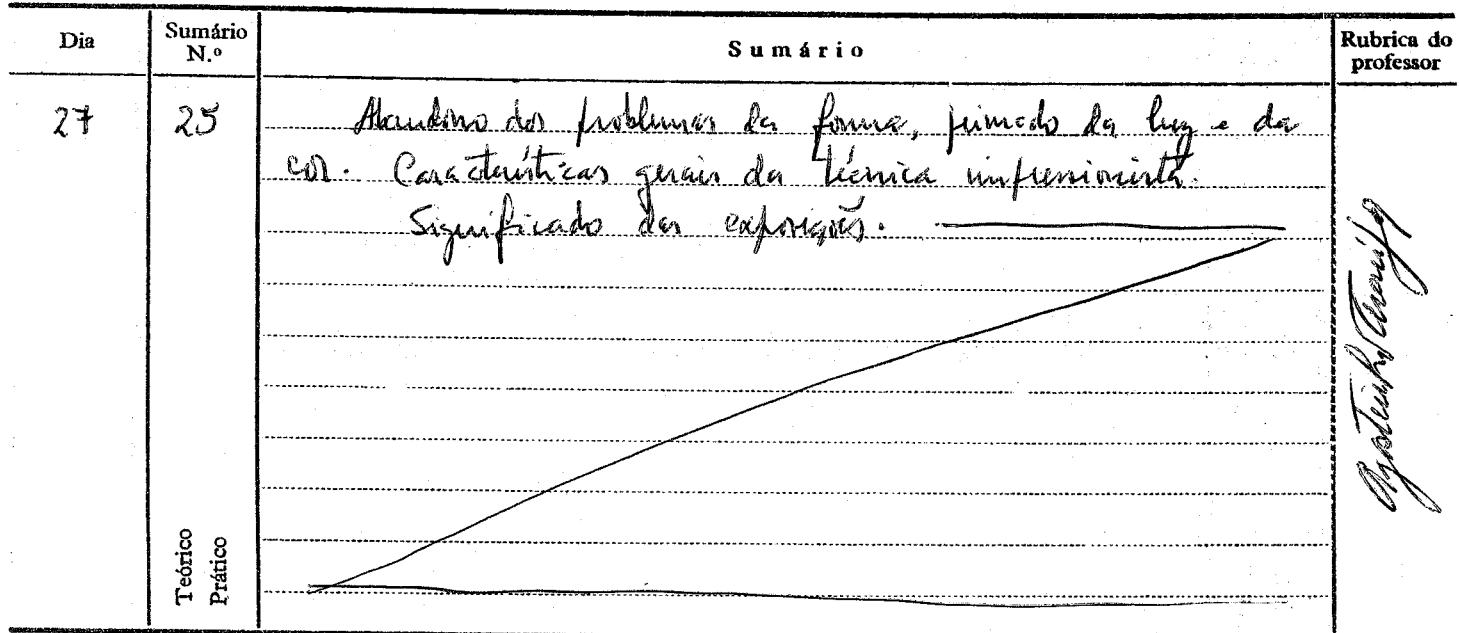 Dia
Sumário N.º
Sumário
Rubrica do professor
27
25
Abandono dos problemas da forma, primado da luz e da
cor. Características gerais da técnica impressionista.
Significado das exposições.
Teórico
Prático
Agostinho Araújo